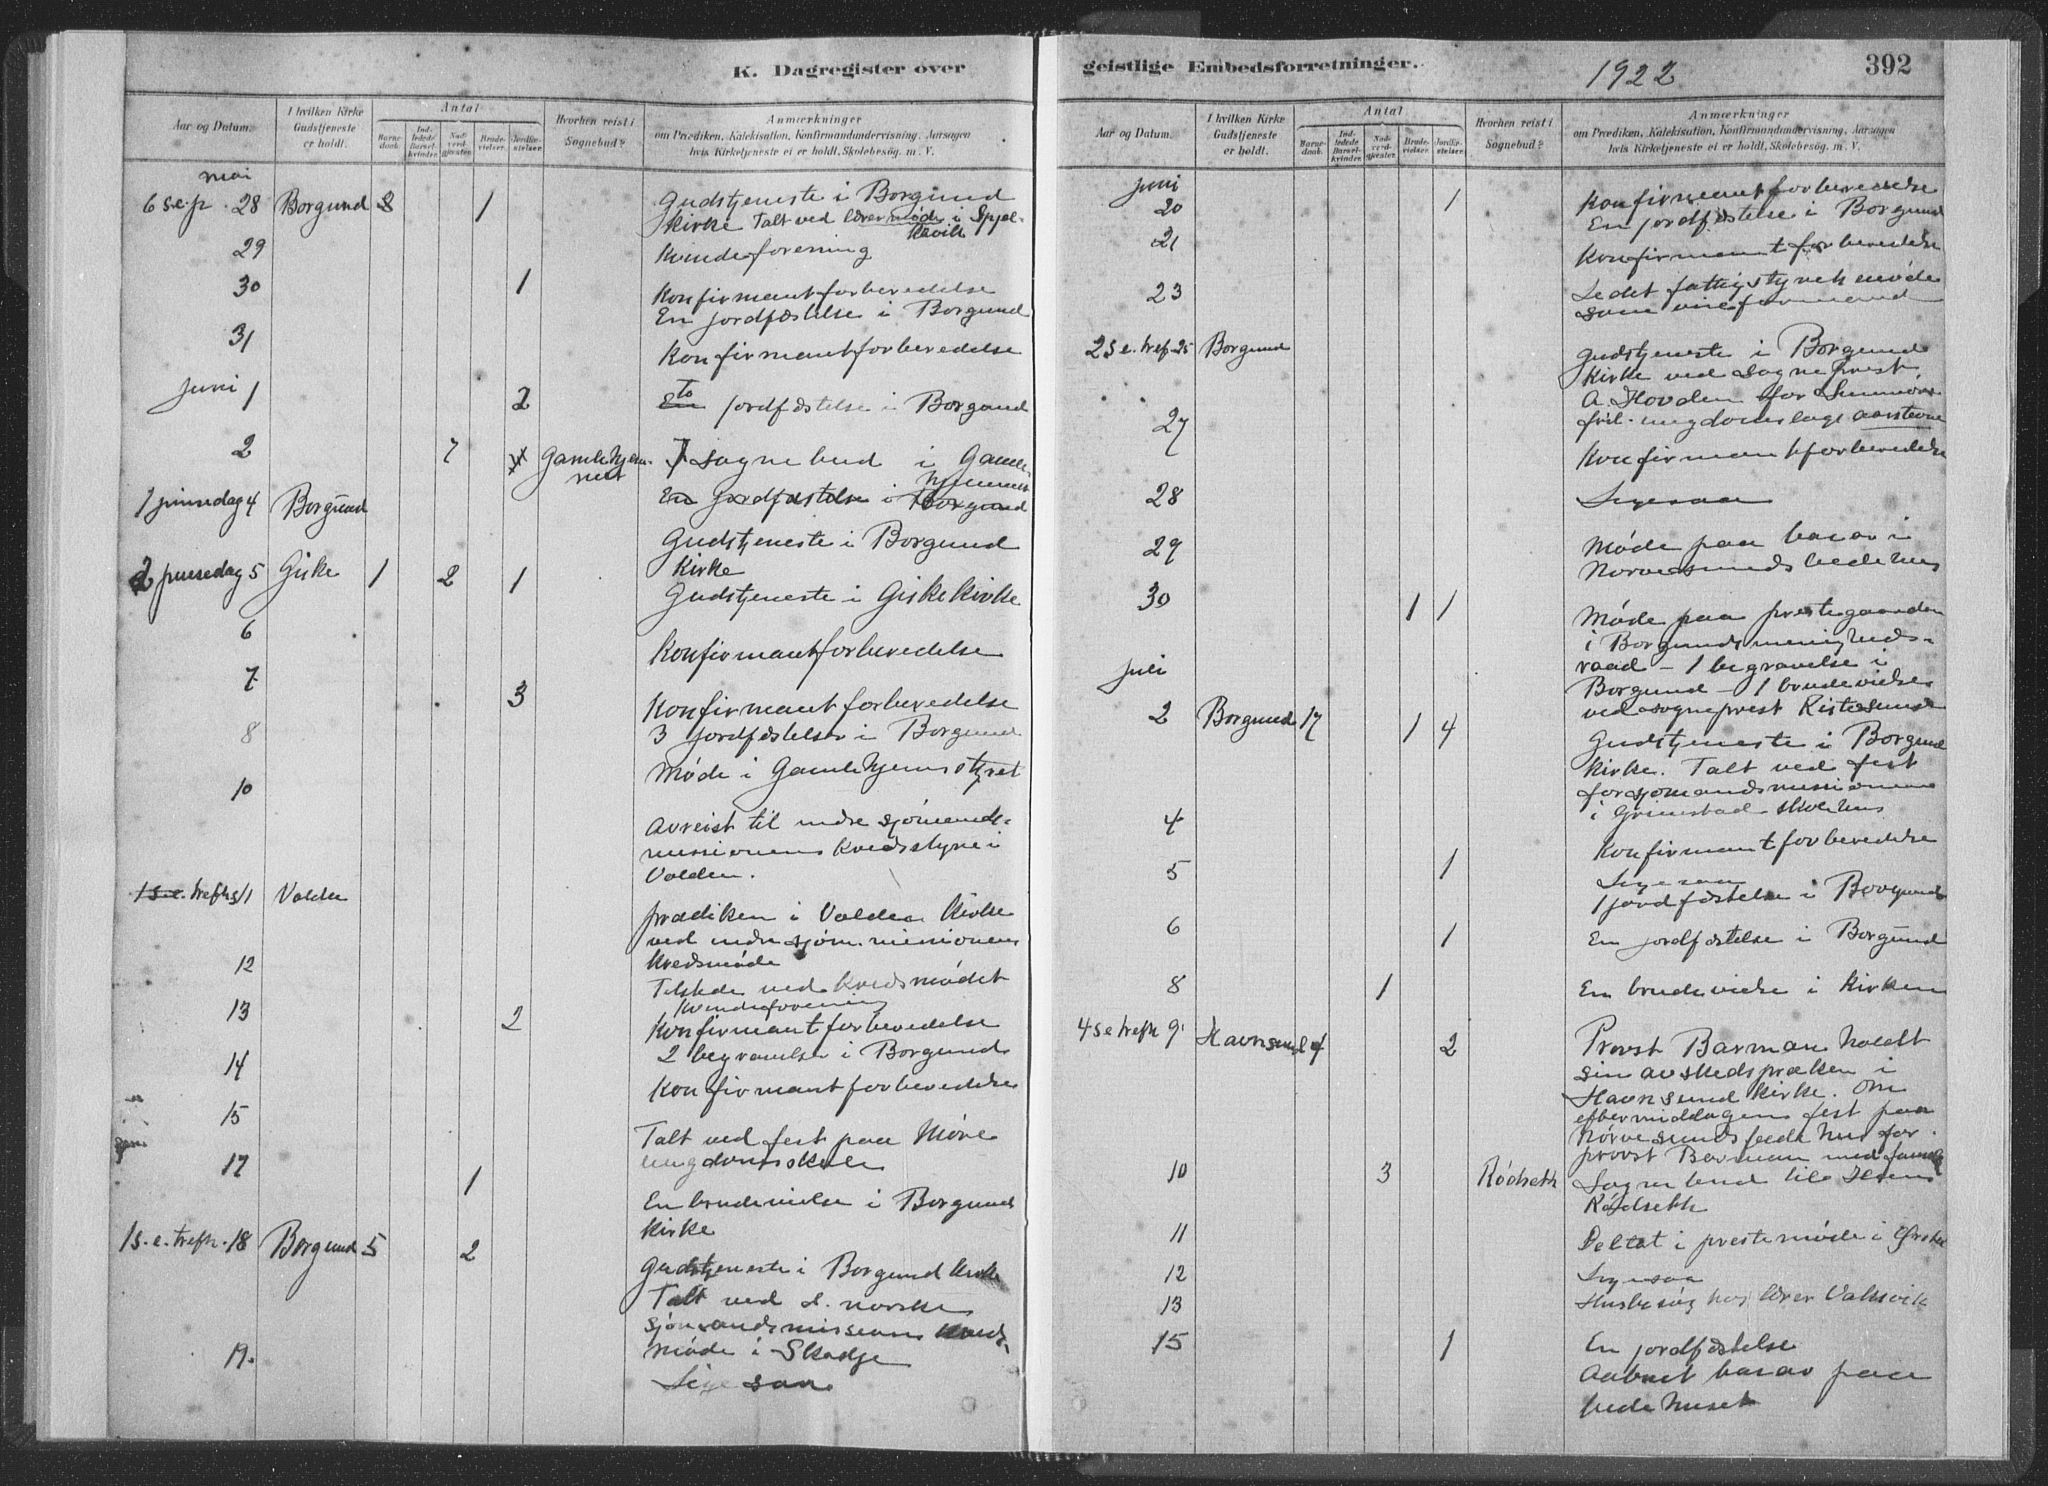 K. Dagregister over
Aar og Datum.
I hvilken Kirke Gudstjeneste er holdt.
Antal
Barnedaab.
Indledede Barselkvinder.
Nadverdgjester.
Brudevielser.
Jordfæstelser.
Hvorhen reist i Sognebud?
Anmærkninger
om Prædiken, Katekisation, Konfirmandundervisning, Aarsagen
hvis Kirketjeneste ei er holdt, Skolebesög. m. V.
mai
6 s. e. p. 28 Borgund 8 1 Gudstjeneste i Borgund
kirke Talt ved lærermøde i Spjel-
kavik
29 Kvindeforening
30 1 Konfirmantforberedelse
En jordfæstelse i Borgund
31 Konfirmantforberedelse
Juni 1 2 En to jordfæstelse i Borgund
2 7 Gamlehjem-
met Sognebud i Gamle-
hjemmet
En jordfæstelse i Borgund
1 pinsedag 4 Borgund Gudstjeneste i Borgund
Kirke
2 pinsedag 5 Giske 1 2 1 Gudstjeneste i Giske Kirke
6 Konfirmantforberedelse
7 3 Konfirmantforberedelse
3 jordfæstelser i Borgund
8 Møde i Gamlehjemsstyret
10 Avreist til indre sjømands-
missionens Kredsstyre i
Volden.
1 s. e. trefh. 11 Volden prædiken i Volden Kirke
ved indre sjøm. missionens
Kredsmøde
12 Tilstede ved Kredsmødet
Kvindeforening
13 2 Konfirmantforberedelse
2 begravelser i Borgund
14 Konfirmantforberedelse
15 Talt ved fest paa Møre
ungdomsskole
17 1 En brudevielse i Borgund
Kirke
1 s. e. trefh. 18 Borgund 5 2 Gudstjeneste i Borgund Kirke
Talt ved d. norske
sjømandsmissions Kreds-
møde i Skodje
19. Ligesaa
geistlige Embedsforretninger.
1922
392
Aar og Datum.
I hvilken Kirke Gudstjeneste er holdt.
Antal
Barnedaab.
Indledede Barselkvinder.
Nadverdgjester.
Brudevielser.
Jordfæstelser.
Hvorhen reist i Sognebud?
Anmærkninger
om Prædiken, Katekisation, Konfirmandundervisning, Aarsagen
hvis Kirketjeneste ei er holdt, Skolebesög. m. V.
Juni
20 1 Konfirmantforberedelse
En jordfæstelse i Borgund
21 Konfirmantforberedelse
23 Ledet fattigstyrets møde
som viseformand
2 s. e. tref. 25 Borgund Gudstjeneste i Borgund
Kirke ved Sogneprest
A. Hovden for Sunnmør
fril. ungdomslags aarstevne
27 Konfirmantforberedelse
28 Ligesaa
29 Møde paa basar i
Nørvesunds bedehus
30 1 1 Møde paa prestegaarden
i Borgunds menigheds-
raad - 1 begravelse i
Borgund - 1 brudevielse
ved sogneprest Ristesund
Juli
2 Borgund 17 1 4 Gudstjeneste i Borgund
Kirke. Talt ved fest
for sjømandsmissionen
i Grimstad skolehus
4 Konfirmantforberedelse
5 1 Ligesaa
1 jordfæstelse i Borgund
6 1 En jordfæstelse i Borgund
8 1 En brudevielse i Kirken
4 s e trefh 9. Havnsund 4 2 Provst Barman holdt
sin avskedspræken i
Havnsund Kirke. Om
eftermiddagen fest paa
Nørvesunds bedehus for
provst Barman med familie
10 3 Rødseth Sognebud til
Rødseth
11 Deltat i prestemøde i Ørsta
12 Ligesaa
13 Husbesøg hos lærer Valsvik
15 1 En jordfæstelse
Aabnet basar paa
bedehuset